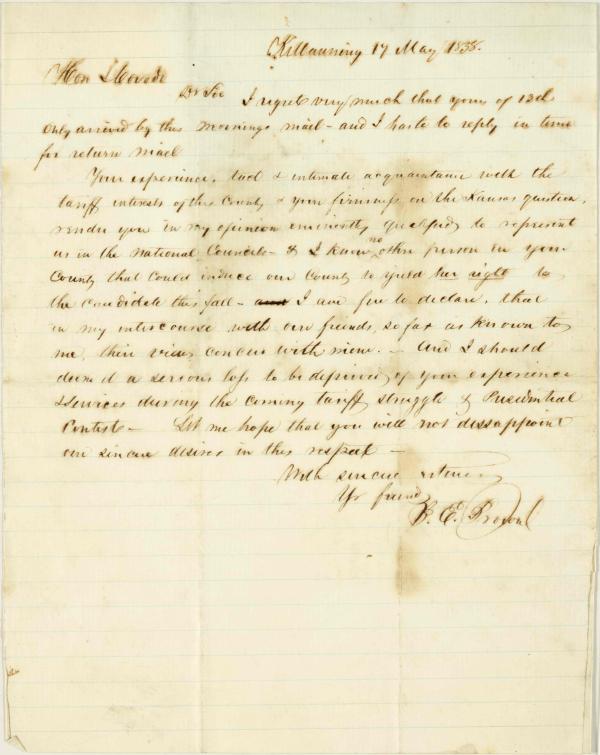 Kittanning 17 May 1858.
Hon J Covode
Dr Sir I regret very much that yours of 12th
only arrived by this mornings mail - and I haste to reply in time
for return mail
Your experience, tact & intimate acquaintance with the
tariff interests of this County & your firmness on the Kansas question,
render you in my opinion eminently qualified to represent
us in the National Councils - & I know no other person in your
County that could induce our County to yield her right to
the candidate this fall - and I am free to declare, that
in my intercourse with our friends, so far as known to
me, their views concur with mine. - And I should
deem it a serious loss to be deprived of your experience
& services during the coming tariff struggle & Presidential
Contest - Let me hope that you will not dissappoint
our sincere desires in this respect -
With sincere esteem
Yr friend